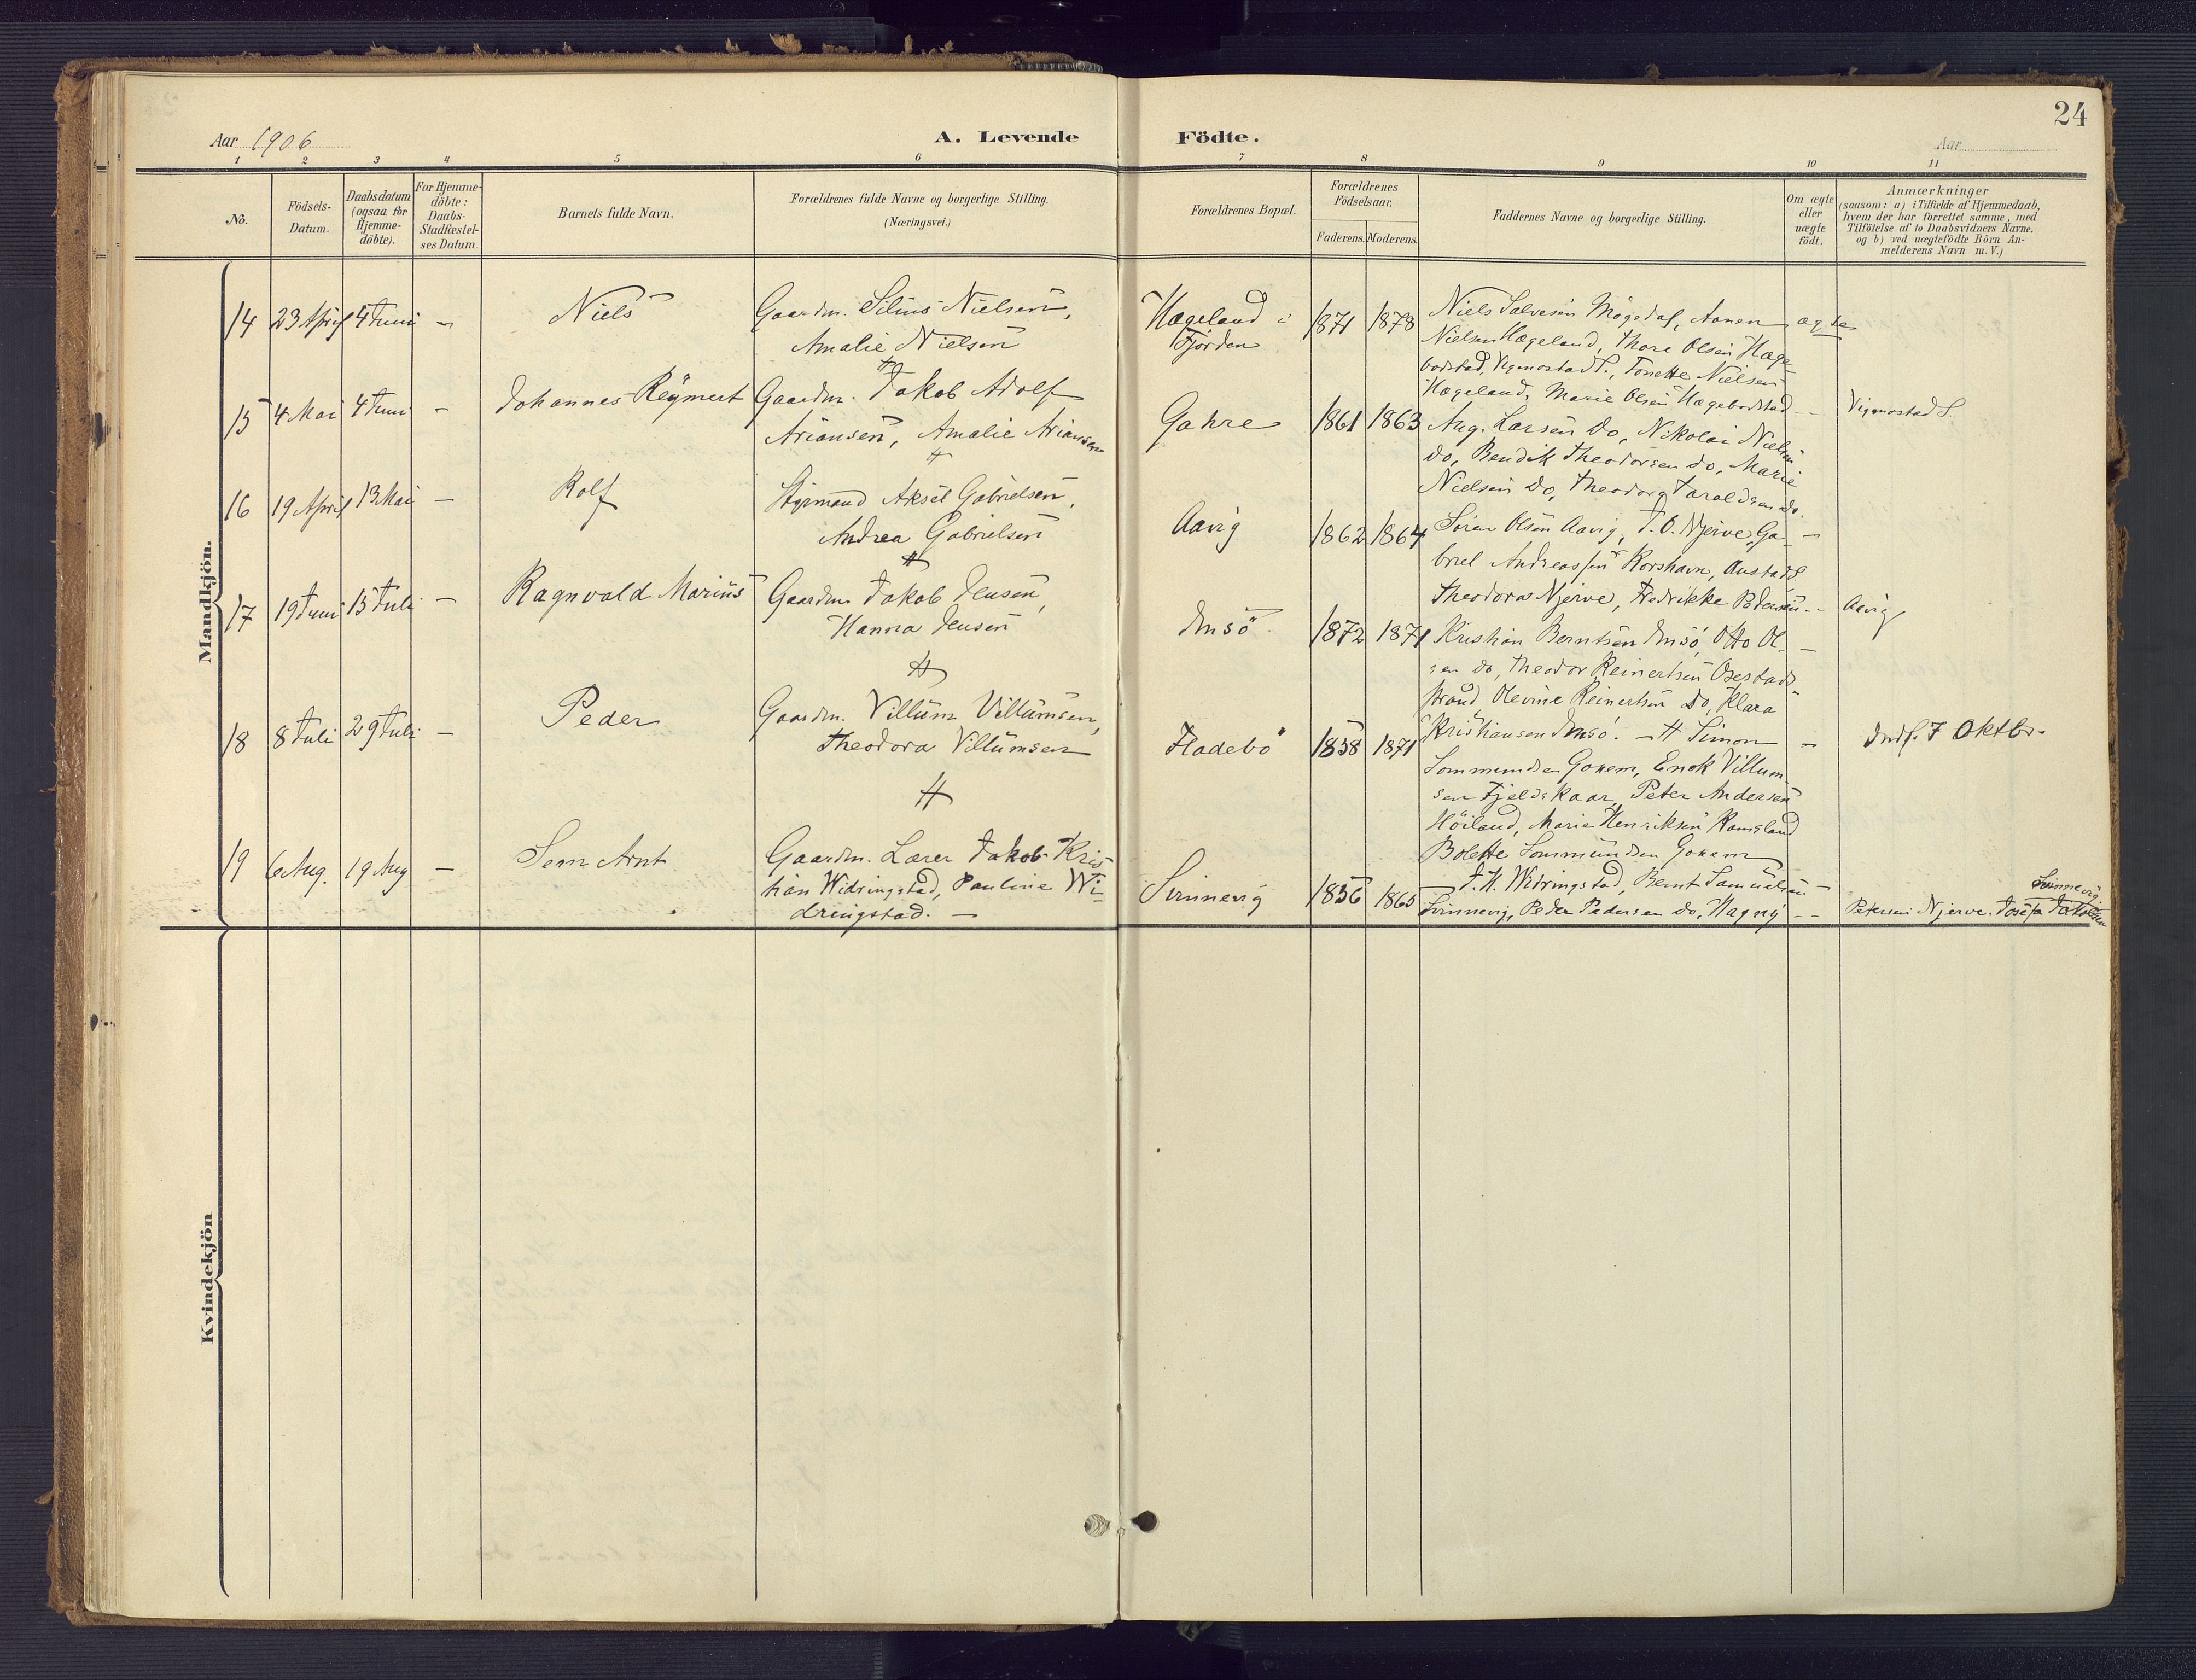 24
Aar 1906
A. Levende Födte.
Aar
1 2 3 4 5 6 7 8 9 10 11
No.
Födsels-
Datum.
Daabsdatum
(ogsaa for
Hjemme-
döbte).
For Hjemme-
döbte:
Daabs-
Stadfæstel-
ses Datum.
Barnets fulde Navn.
Forældrenes fulde Navne og borgerlige Stilling.
(Næringsvei.)
Forældrenes Bopæl.
Forældrenes
Födselsaar.
Faderens. Moderens.
Faddernes Navne og borgerlige Stilling.
Om ægte
eller
uægte
födt.
Anmærkninger
(saasom: a) i Tilfælde af Hjemmedaab,
hvem der har forrettet samme, med
Tilföielse af to Daabsvidners Navne.
og b) ved uægtefödte Börn An-
melderens Navn m. V.)
Mandkjön.
14 23 April 4 Juni - Niels
Gaardm. Silius Nielsen,
Amalie Nielsen
Hægeland i
Fjorden
1871 1878
Niels Salvesen Mögedal, Aanen
Nielsen Hægeland, Thore Olsen Hæge-
bostad, Vigmostad S., Tonette Nielsen
Hægeland, Marie Olsen Hægebostad
ægte
Vigmostad S.
15 4 Mai 4 Juni - Johannes Reymert
Gaardm. Jakob Adolf
Ariansen, Amalie Ariansen
Gahre
1861 1863
Aug. Larsen do, Nikolai Nielsen
do, Bendik Theodorsen do, Marie
Nielsen do, Theodora Taraldsen do.
16 19 April 13 Mai - Rolf
Styrmand Aksel Gabrielsen,
Andrea Gabrielsen
Aavig
1862 1864
Sören Olsen Aavig, T. O. Njerve, Ga-
briel Andreassen Korshavn, Austad S.
Theodora Njerve, Fredrikke Pedersen -
-
Aavig
17 19 Juni 15 Juli - Ragnvald Marius
Gaardm. Jakob Jensen,
Hanna Jensen
Imsö
1872 1871
Kristian Berntsen Imsö, Otto Ol-
sen do, Theodor Reinertsen Osestad-
strand Olevine Reinertsen do, Klara
Kristiansen Imsö. -
-
18 8 Juli 29 Juli - Peder
Gaardm. Villum Villumsen,
Theodora Villumsen
Fladebö
1838 1871
Simon
Sommundsen Gonem, Enok Villum-
sen Fjeldskaar, Peter Andersen
Höiland, Marie Henriksen Ramsland
Bolette Sommundsen Gonem
-
Indf. 7 Oktbr.
19 6 Aug. 19 Aug - Sem Arnt
Gaardm. Lærer Jakob Kris-
tian Widringstad, Pauline Wi-
dringstad. -
Svinnevig
1856 1865
J. K. Widringstad, Bernt Samuelsen
Svinnevig, Peder Pedersen do, Magny
-
Petersen Njerve. Josefa Jakobsen
Svinnevig
Kvindekjön